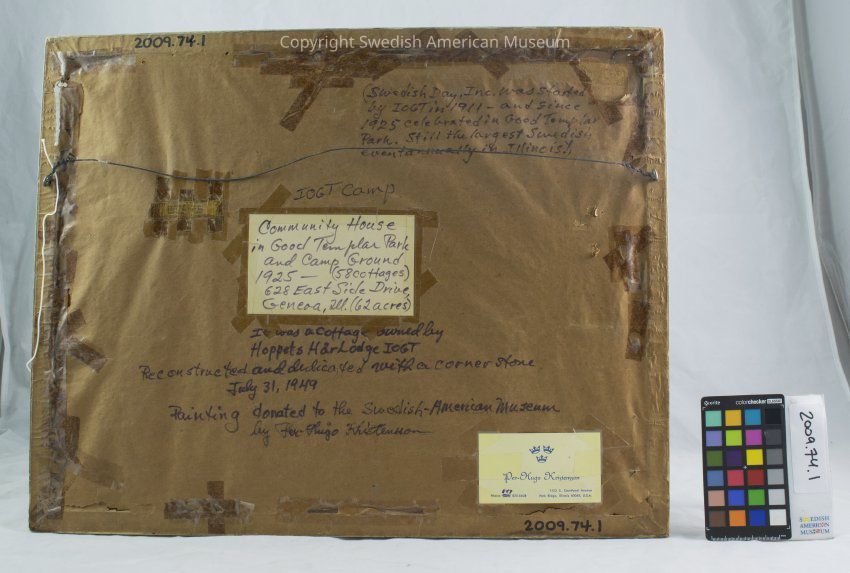 2009.74.1
Copyright Swedish American Museum
(Swedish Day, Inc. was started
by IOGT in 1911 – and since
1925 celebrated in Good Templar
Park. Still the largest Swedish
event annually in Illinois!)
IOGT Camp
Community House
in Good Templar Park
and Camp Ground
1925 — (58 cottages)
628 East Side Drive,
Geneva, Ill. (62 acres)
It was a cottage owned by
Hoppets Här Lodge IOGT
Reconstructed and dedicated with a corner stone
July 31, 1949
Painting donated to the Swedish-American Museum
by Per-Hugo Kristensson
Per-Hugo Kristensson
Park Ridge, Illinois 60068, U.S.A.
2009.74.1
x-rite colorchecker CLASSIC
2009.74.1
SWEDISH
AMERICAN
MUSEUM